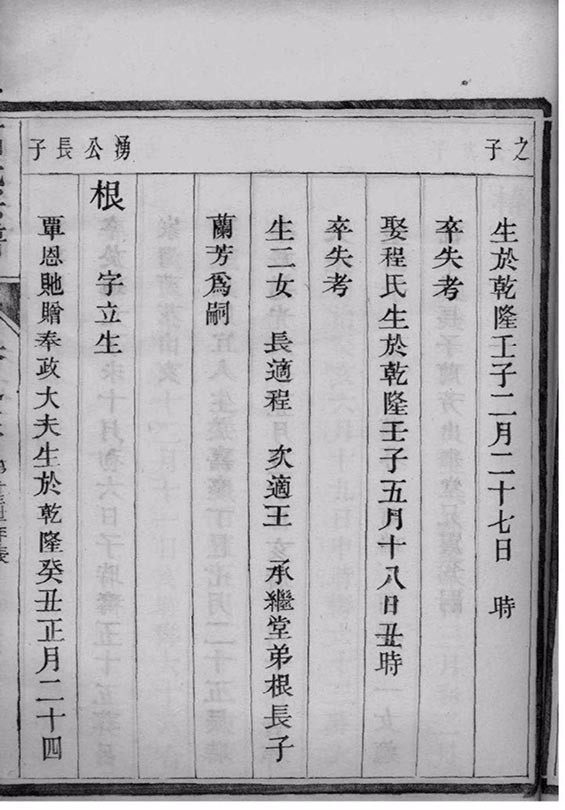 之子
生於乾隆壬子二月二十七日　時
卒失考
娶程氏生於乾隆壬子五月十八日丑時
卒失考
生二女　長適程　次適王　承繼堂弟根長子
蘭芳爲嗣
湧公長子
根　字立生
覃恩貤贈奉政大夫生於乾隆癸丑正月二十四